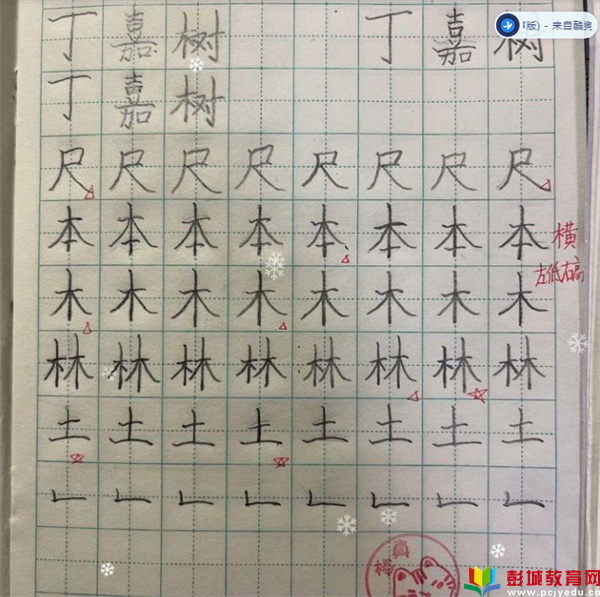 丁 嘉 树 丁 嘉 树
版) - 来自酷狗
丁 嘉 树
尺 尺 尺 尺 尺 尺 尺 尺
本 本 本 本 本 本 本 本
横
左低右高
木 木 木 木 木 木 木 木
林 林 林 林 林 林 林 林
土 土 土 土 土 土 土 土
𠃊 𠃊 𠃊 𠃊 𠃊 𠃊 𠃊 𠃊
真棒
彭城教育网
www.pcjyedu.cn